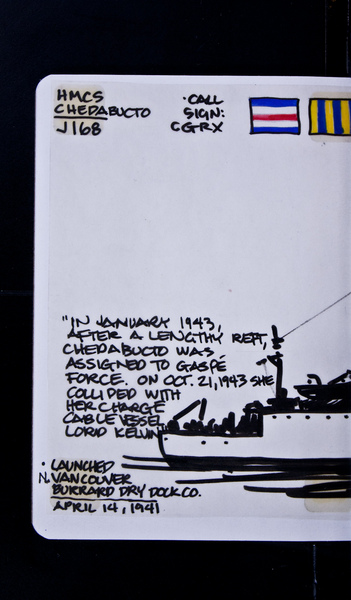 HMCS
CHEDABUCTO
J168
·CALL
SIGN:
CGRX
"IN JANUARY 1943,
AFTER A LENGTHY REFT,
CHEDABUCTO WAS
ASSIGNED TO GASPÉ
FORCE. ON OCT. 21, 1943 SHE
COLLIDED WITH
HER CHARGE
CABLE VESSEL
LORD KELVIN
· LAUNCHED
N. VANCOUVER
BURRARD DRY DOCK CO.
APRIL 14, 1941